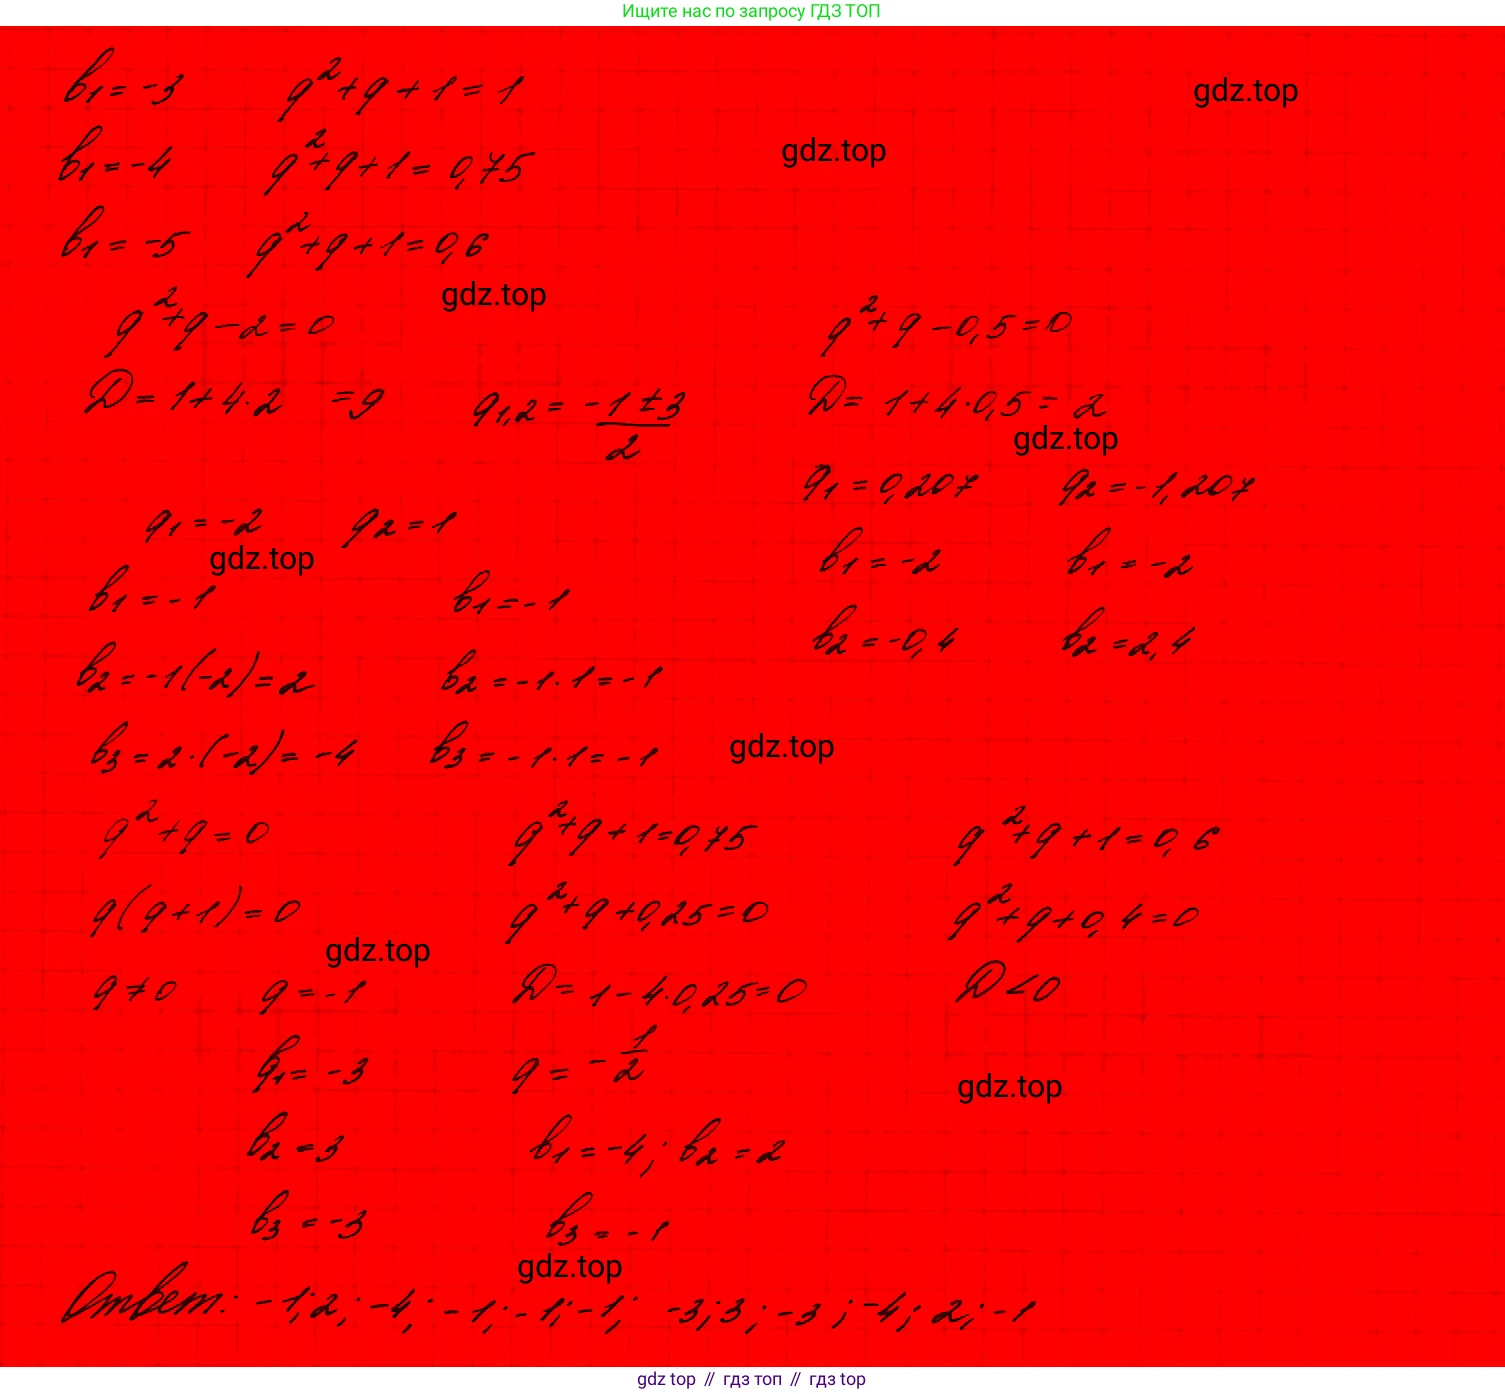 Ищите нас по запросу ГДЗ ТОП
b₁ = -3 q² + q + 1 = 1
gdz.top
b₁ = -4 q² + q + 1 = 0,75
gdz.top
b₁ = -5 q² + q + 1 = 0,6
gdz.top
q² + q - 2 = 0 q² + q - 0,5 = 0
D = 1 + 4 · 2 = 9 q₁,₂ = (-1 ± 3)/2 D = 1 + 4 · 0,5 = 2
gdz.top
q₁ = 0,207 q₂ = -1,207
q₁ = -2 q₂ = 1
gdz.top
b₁ = -2 b₁ = -2
b₁ = -1 b₁ = -1
b₂ = -0,4 b₂ = 2,4
b₂ = -1(-2) = 2 b₂ = -1 · 1 = -1
b₃ = 2 · (-2) = -4 b₃ = -1 · 1 = -1
gdz.top
q² + q = 0 q² + q + 1 = 0,75 q² + q + 1 = 0,6
q(q + 1) = 0 q² + q + 0,25 = 0 q² + q + 0,4 = 0
gdz.top
q ≠ 0 q = -1 D = 1 - 4 · 0,25 = 0 D < 0
b₁ = -3 q = -1/2
gdz.top
b₂ = 3 b₁ = -4; b₂ = 2
b₃ = -3 b₃ = -1
gdz.top
Ответ: -1; 2; -4; -1; -1; -1; -3; 3; -3; -4; 2; -1
gdz top // гдз топ // гдз top